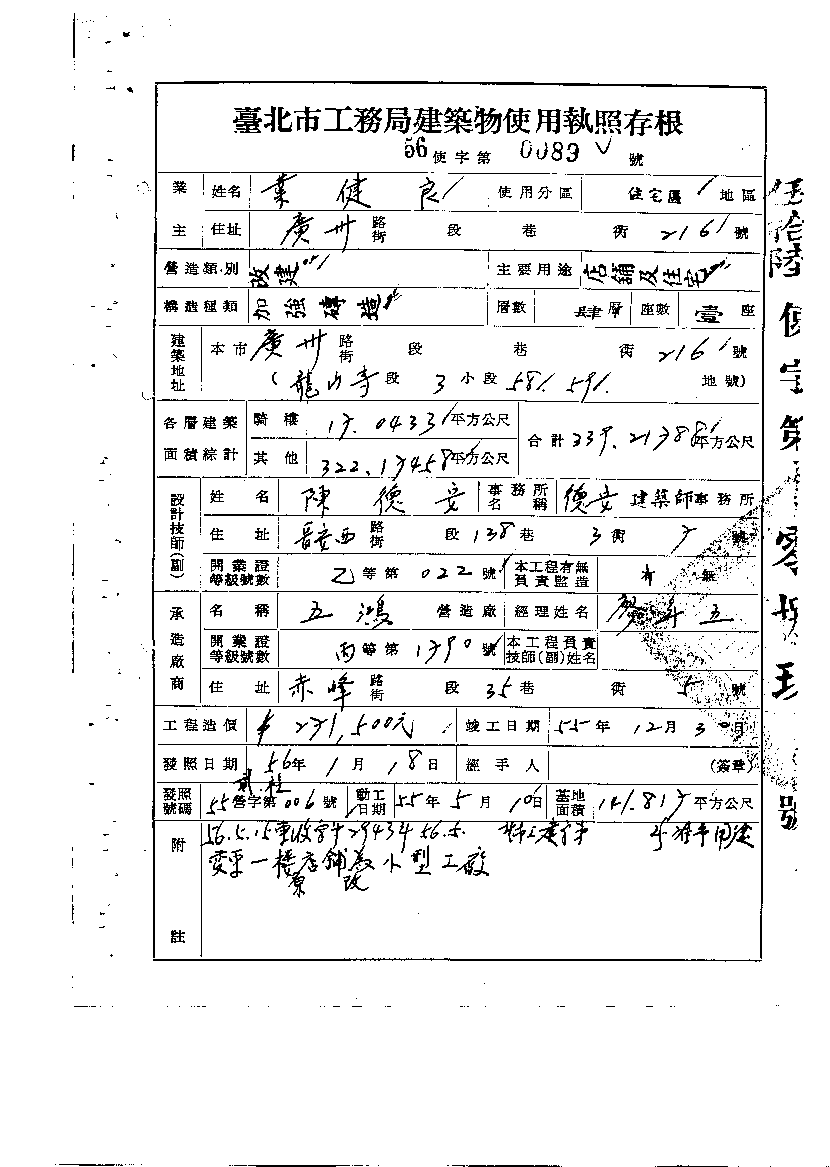 臺北市工務局建築物使用執照存根
56使字第0089號
業主 姓名 葉健良 使用分區 住宅區地區
住址 廣州路街 段 巷 衖 216號
營造類別 改建 主要用途 店舖及住宅
構造種類 加強磚造 層數 肆層 座數 壹座
建築地址 本市廣州路街 段 巷 衖 216號
(龍山寺段 3小段 58, 59, 地號)
各層建築面積綜計 騎樓 17.0433平方公尺 合計 339.21788平方公尺
其他 322.17458平方公尺
設計技師(副) 姓名 陳德安 事務所名稱 德安建築師事務所
住址 晉安西路街 段 138巷 3衖 7號
開業證等級號數 乙等第022號 本工程有無負責監造 有 無
承造廠商 名稱 五鴻營造廠 經理姓名 廖 五
開業證等級號數 丙等第1790號 本工程負責技師(副)姓名
住址 赤峰路街 段 35巷 衖 5號
工程造價 271,500元 竣工日期 55年12月30日
發照日期 56年1月18日 經手人 (簽章)
發照號碼 55營字第006號 動工日期 55年5月10日 基地面積 141.817平方公尺
附註 56.5.15 收字 29434 56.5. 用途
變更一樓店舖為小型工廠
原 改
伍拾陸使字第零 號